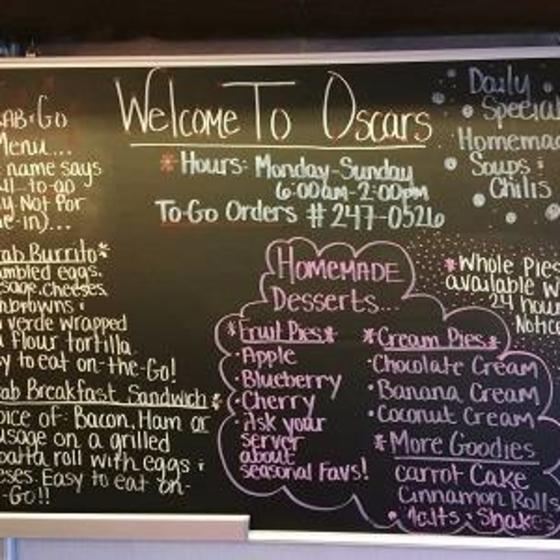 Welcome To Oscars
*Hours: Monday-Sunday
6:00am-2:00pm
To-Go Orders #247-0526
AB & Go
Menu...
name says
ll-to-go
y Not For
e-in)...
ab Burrito*
mbled eggs.
sage.cheeses.
hbrowns &
verde wrapped
flour tortilla
y to eat on-the-Go!
ab Breakfast Sandwich*
oice of: Bacon, Ham or
usage on a grilled
batta roll with eggs &
eses. Easy to eat on-
-Go!!
HOMEMADE
Desserts...
*Fruit Pies*
• Apple
• Blueberry
• Cherry
• Ask your
server
about
seasonal Favs!
*Cream Pies*
• Chocolate Cream
• Banana Cream
• Coconut Cream
*More Goodies
carrot Cake
Cinnamon Rolls
• Malts & Shakes
Daily
Special
Homemad
Soups &
Chilis
*Whole Pies
available w
24 hour
Notic